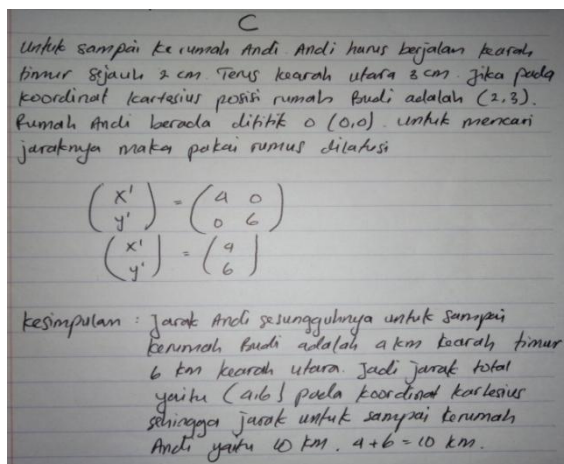 C
Untuk sampai ke rumah Andi. Andi harus berjalan kearah
timur sejauh 2 cm. Terus kearah utara 3 cm. Jika pada
koordinat kartesius posisi rumah Budi adalah (2,3).
Rumah Andi berada dititik 0 (0,0). Untuk mencari
jaraknya maka pakai rumus dilatasi
(x' y') = (4 0 0 6)
(x' y') = (4 6)
Kesimpulan : Jarak Andi sesungguhnya untuk sampai
kerumah Budi adalah 4 km kearah timur
6 km kearah utara. Jadi jarak total
yaitu (4,6) pada koordinat kartesius
sehingga jarak untuk sampai kerumah
Andi yaitu 10 km. 4+6 = 10 km.